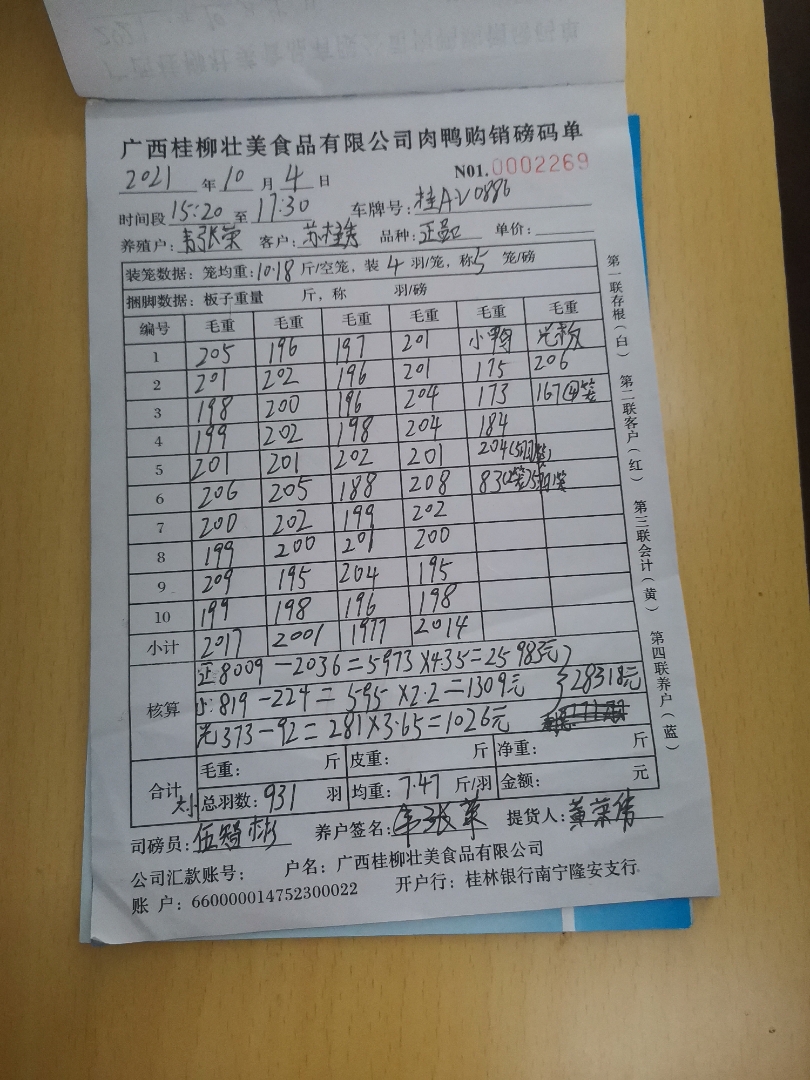 广西桂柳壮美食品有限公司肉鸭购销磅码单
2021 年 10 月 4 日 N01.0002269
时间段 15:20 至 17:30 车牌号: 桂AV0886
养殖户: 韦张荣 客户: 苏桂 品种: 正 单价:
装笼数据: 笼均重: 10.18 斤/空笼, 装 4 羽/笼, 称 5 笼/磅
捆脚数据: 板子重量 斤, 称 羽/磅
编号 毛重 毛重 毛重 毛重 毛重 毛重
1 205 196 197 201 小鸭
2 201 202 196 201 175 206
3 198 200 196 204 173 167④笼
4 199 202 198 204 184
5 201 201 202 201 204(5羽笼)
6 206 205 188 208 83(2笼)
7 200 202 199 202
8 199 200 201 200
9 209 195 204 195
10 199 198 196 198
小计 2017 2001 1977 2014
核算 正8009－2036=5973×4.35=25983元
小:819－224=595×2.2=1309元 }28318元
光373－92=281×3.65=1026元
合计 毛重: 斤 皮重: 斤 净重: 斤
大小 总羽数: 931 羽 均重: 7.47 斤/羽 金额: 元
司磅员: 伍 彬 养户签名: 韦张荣 提货人: 黄荣伟
公司汇款账号: 户名: 广西桂柳壮美食品有限公司
账 户: 660000014752300022 开户行: 桂林银行南宁隆安支行
第一联存根(白) 第二联客户(红) 第三联会计(黄) 第四联养户(蓝)